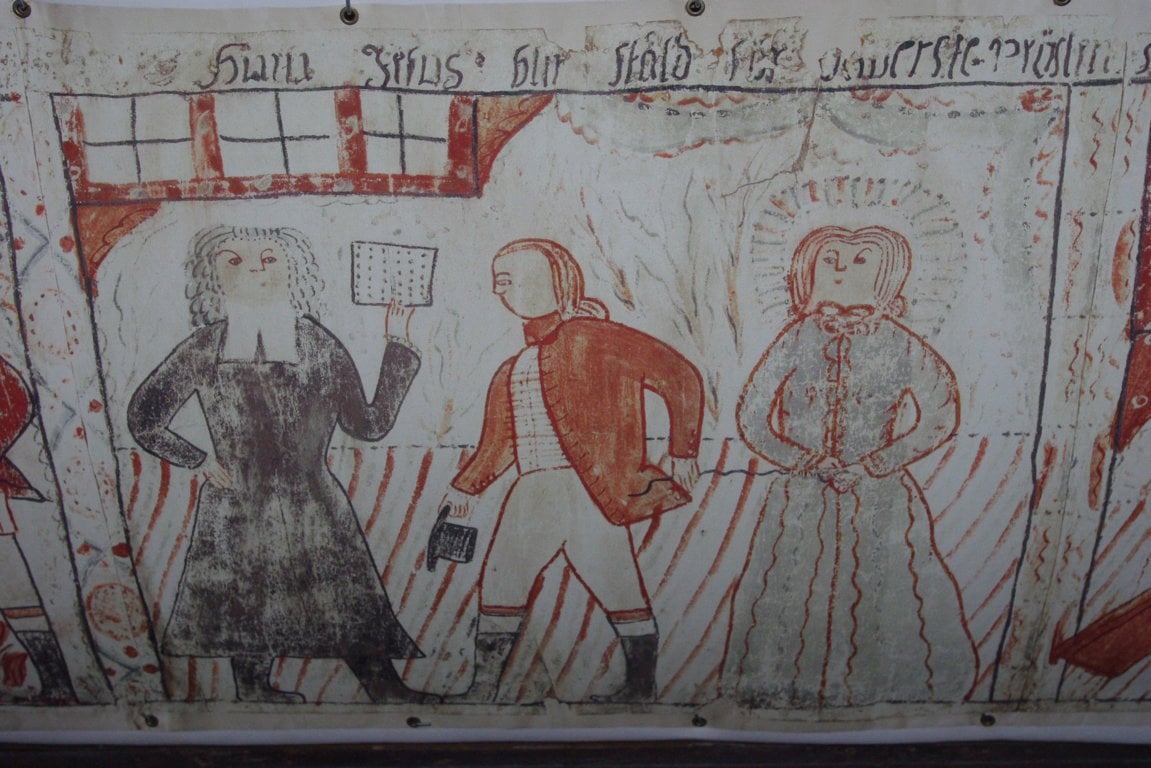 huru Jesus blir stäld för öfwerste-Präste